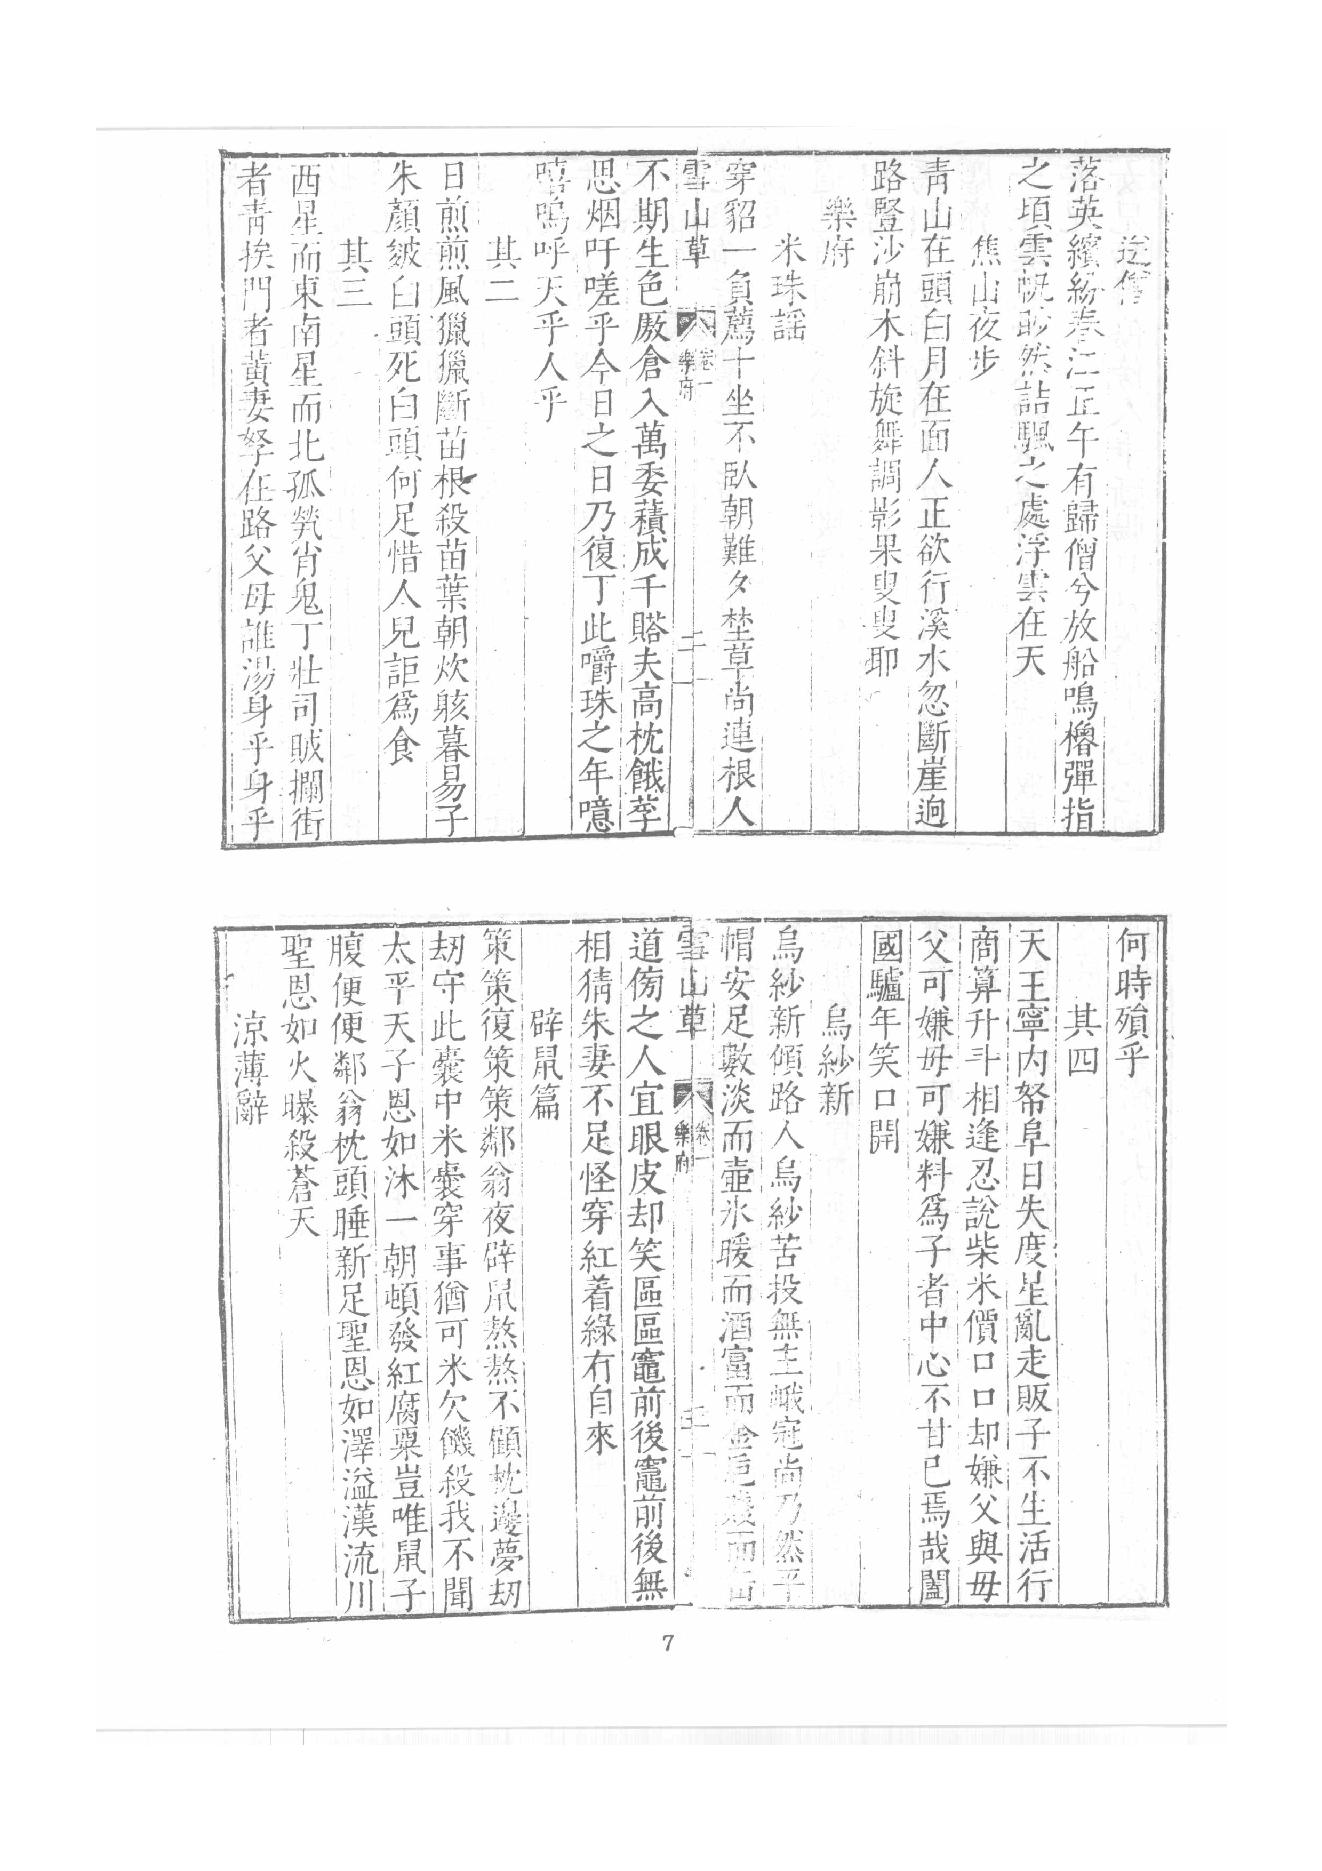 送僧
落英繽紛春江正午有歸僧兮放船鳴櫓彈指
之頃雲帆眇然詰颿之處浮雲在天
焦山夜步
青山在頭白月在面人正欲行溪水忽斷崖迥
路豎沙崩木斜旋舞調影果叟叟耶
樂府
米珠謠
穿貂一負薦十坐不臥朝難夕埜草尚連根人
雪山草
卷一
樂府
二
不期生色厫倉入萬委積成千賂夫高枕餓莩
思烟吁嗟乎今日之日乃復丁此嚼珠之年噫
嘻嗚呼天乎人乎
其二
日煎煎風獵獵斷苗根殺苗葉朝炊骸暮易子
朱顏皴白頭死白頭何足惜人兒詎爲食
其三
西星而東南星而北孤煢肖鬼丁壯司賊攔街
者靑挨門者黃妻孥在路父母誰湯身乎身乎
何時殞乎
其四
天王寧內帑阜日失度星亂走販子不生活行
商算升斗相逢忍說柴米價口口却嫌父與毋
父可嫌毋可嫌料爲子者中心不甘已焉哉闔
國驢年笑口開
烏紗新
烏紗新傾路人烏紗苦投無主峨冠尚乃然平
帽安足數淡而壺氷暖而酒富而金而
雪山草
卷一
樂府
三
道傍之人宜眼皮却笑區區竈前後竈前後無
相猜朱妻不足怪穿紅着綠有自來
辟鼠篇
策策復策策鄰翁夜辟鼠熬熬不顧枕邊夢刧
刧守此囊中米囊穿事猶可米欠饑殺我不聞
太平天子恩如沐一朝頓發紅腐粟豈唯鼠子
腹便便鄰翁枕頭睡新足聖恩如澤溢漢流川
聖恩如火曝殺蒼天
涼薄辭
7